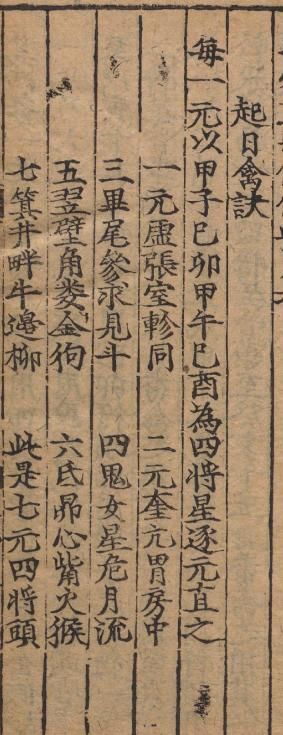 起日禽訣
每一元以甲子巳卯甲午巳酉為四將星逐元直之
一元虛張室軫同　二元奎亢胃房中
三畢尾參求見斗　四鬼女星危月流
五翌壁角娄金狗　六氐昴心觜火猴
七箕井畔牛邊柳　此是七元四將頭